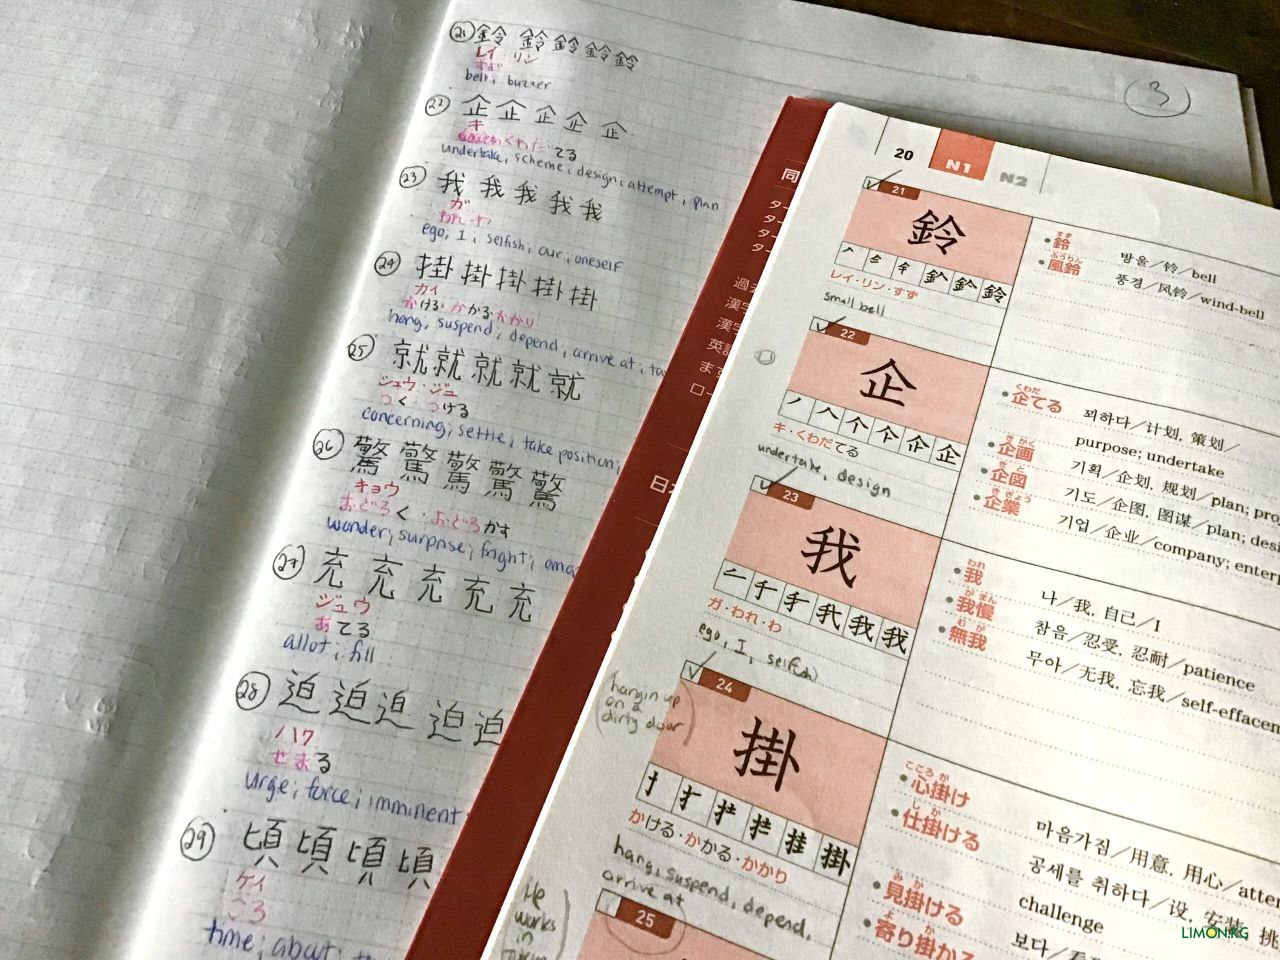 3
21 鈴 鈴 鈴 鈴 鈴
レイ リン
すず
bell; buzzer
22 企 企 企 企 企
キ
くわだてる
undertake; scheme; design; attempt; plan
23 我 我 我 我 我
ガ
われ・わ
ego; I; selfish; our; oneself
24 掛 掛 掛 掛 掛
カイ
かける・かかる・かかり
hang; suspend; depend; arrive at;
25 就 就 就 就 就
シュウ・ジュ
つく・つける
concerning; settle; take position;
26 驚 驚 驚 驚 驚
キョウ
おどろく・おどろかす
wonder; surprise; fright;
27 充 充 充 充 充
ジュウ
あてる
allot; fill
28 迫 迫 迫 迫 迫
ハク
せまる
urge; force; imminent
29 頃 頃 頃 頃
ケイ
ころ
time; about;
同
日
20 N1 N2
21
鈴
レイ・リン・すず
small bell
すず
・鈴 방울/铃/bell
ふうりん
・風鈴 풍경/风铃/wind-bell
22
企
キ・くわだてる
undertake, design
くわだ
・企てる 꾀하다/计划, 策划/
purpose; undertake
きかく
・企画 기획/企划, 规划/plan;
きと
・企図 기도/企图, 图谋/plan;
きぎょう
・企業 기업/企业/company;
23
我
ガ・われ・わ
ego, I, selfish
われ
・我 나/我, 自己/I
がまん
・我慢 참음/忍受, 忍耐/patience
むが
・無我 무아/无我, 忘我/
24
掛
かける・かかる・かかり
hang, suspend, depend,
arrive at
(hangin up
on a
dirty door)
こころが
・心掛け 마음가짐/用意, 用心/
しか
・仕掛ける 공세를 취하다/设, 安装,
challenge
みか
・見掛ける
よ
・寄り掛か
25
He
works
in
LIMON.KG